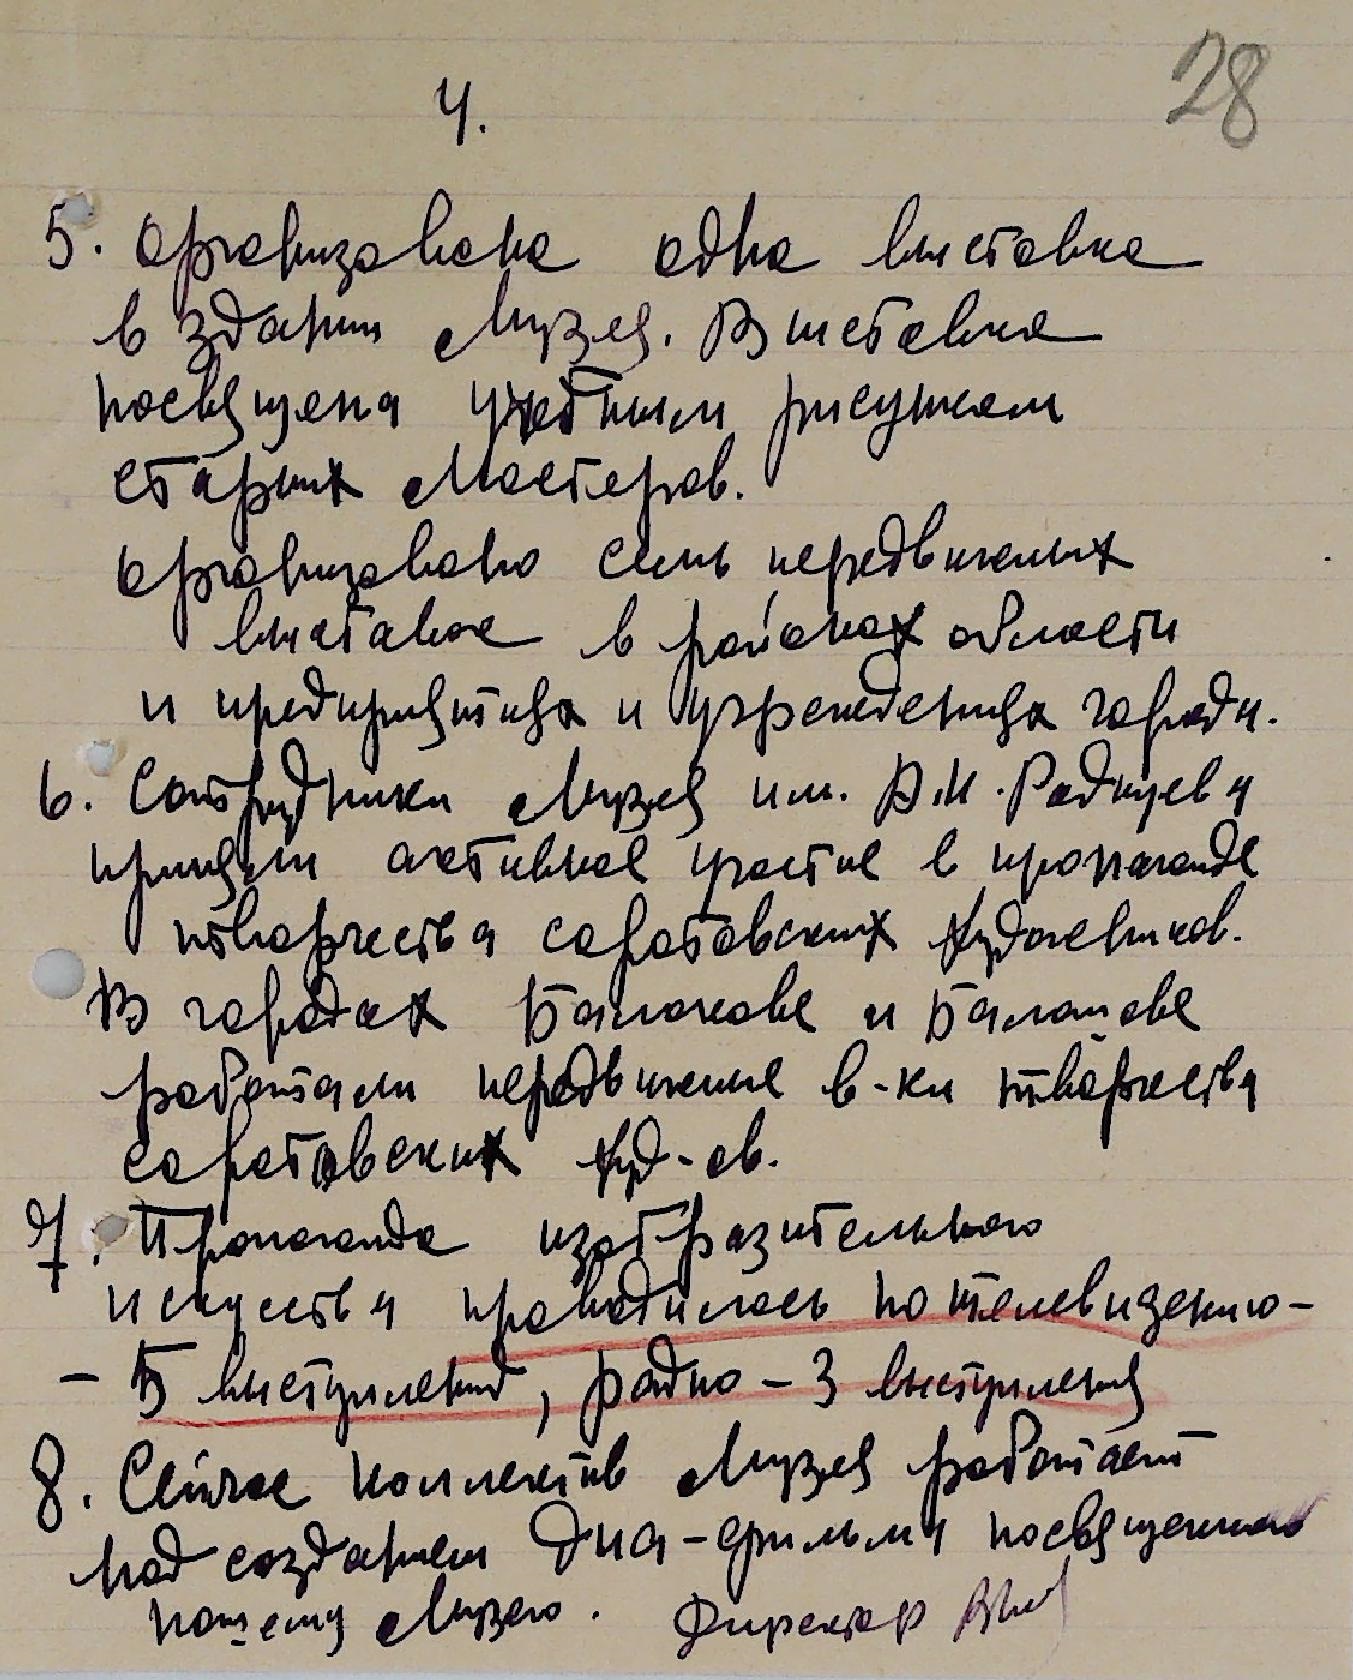 28
4.
5. Организована одна выставка
в здании Музея. Выставка
посвящена учебным рисункам
старых Мастеров.
Организовано семь передвижных
выставок в районах области
и предприятиях и учреждениях города.
6. Сотрудники Музея им. А.Н. Радищева
приняли активное участие в пропаганде
творчества саратовских художников.
В городах Балакове и Балашове
работали передвижные в-ки творчества
саратовских худ-ов.
7. Пропаганда изобразительного
искусства проводилась по телевидению -
- 5 выступлений, радио - 3 выступления
8. Сейчас коллектив Музея работает
над созданием диа-фильма посвященного
нашему Музею. Директор